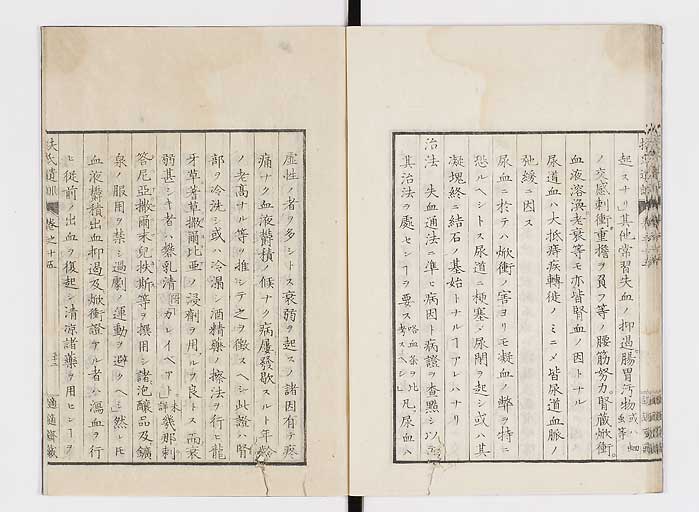 起スナリ其他常習失血ノ抑過腸胃汚物或ハ蛔虫等
ノ交感刺衝重擔ヲ負フ等ノ腰筋努力腎蔵焮衝
血液溶渙老衰等モ亦皆腎血ノ因トナル
尿道血ハ大抵痔疾轉徙ノミニメ皆尿道血脈ノ
弛緩ニ因ス
尿血ニ於テハ焮衝ノ害ヨリモ凝血ノ弊ヲ特ニ
恐ルヘシトス尿道ニ梗塞シ尿閉ヲ起シ或ハ其
凝塊終ニ結石ノ基始トナルヿアレハナリ
治法 失血通法ニ準ヒ病因ト病證ヲ査點シ以テ
其治法ヲ處センヿヲ要ス咯血条ヲ比考スヘシ凡尿血ハ
虚性ノ者ヲ多シトス衰弱ヲ起スノ諸因有テ疼
痛ナク血液欝積ノ候ナク病屢發歇スルト年齢
ノ老高ナル等ヲ推シテ之ヲ徴スヘシ此證ハ腎
部ヲ冷洗シ或ハ冷溻シ酒精藥ノ擦法ヲ行ヒ龍
牙草蓍草撒爾比亜ノ浸剤ヲ用ルヲ良トス而衰
弱甚シキ者ハ礬乳清ガレイヘアト未詳幾那刺
答尼亞撒爾末兒扶斯等ヲ撰用シ諸泡釀品及鑛
泉ノ服用ヲ禁シ過劇ノ運動ヲ避クヘシ然トモ
血液欝積出血抑遏及焮衝證アル者ハ瀉血ヲ行
ヒ従前ノ出血ヲ復起シ清凉諸藥ヲ用ヒシヿヲ
扶氏遺訓 卷之十五
適適齋藏